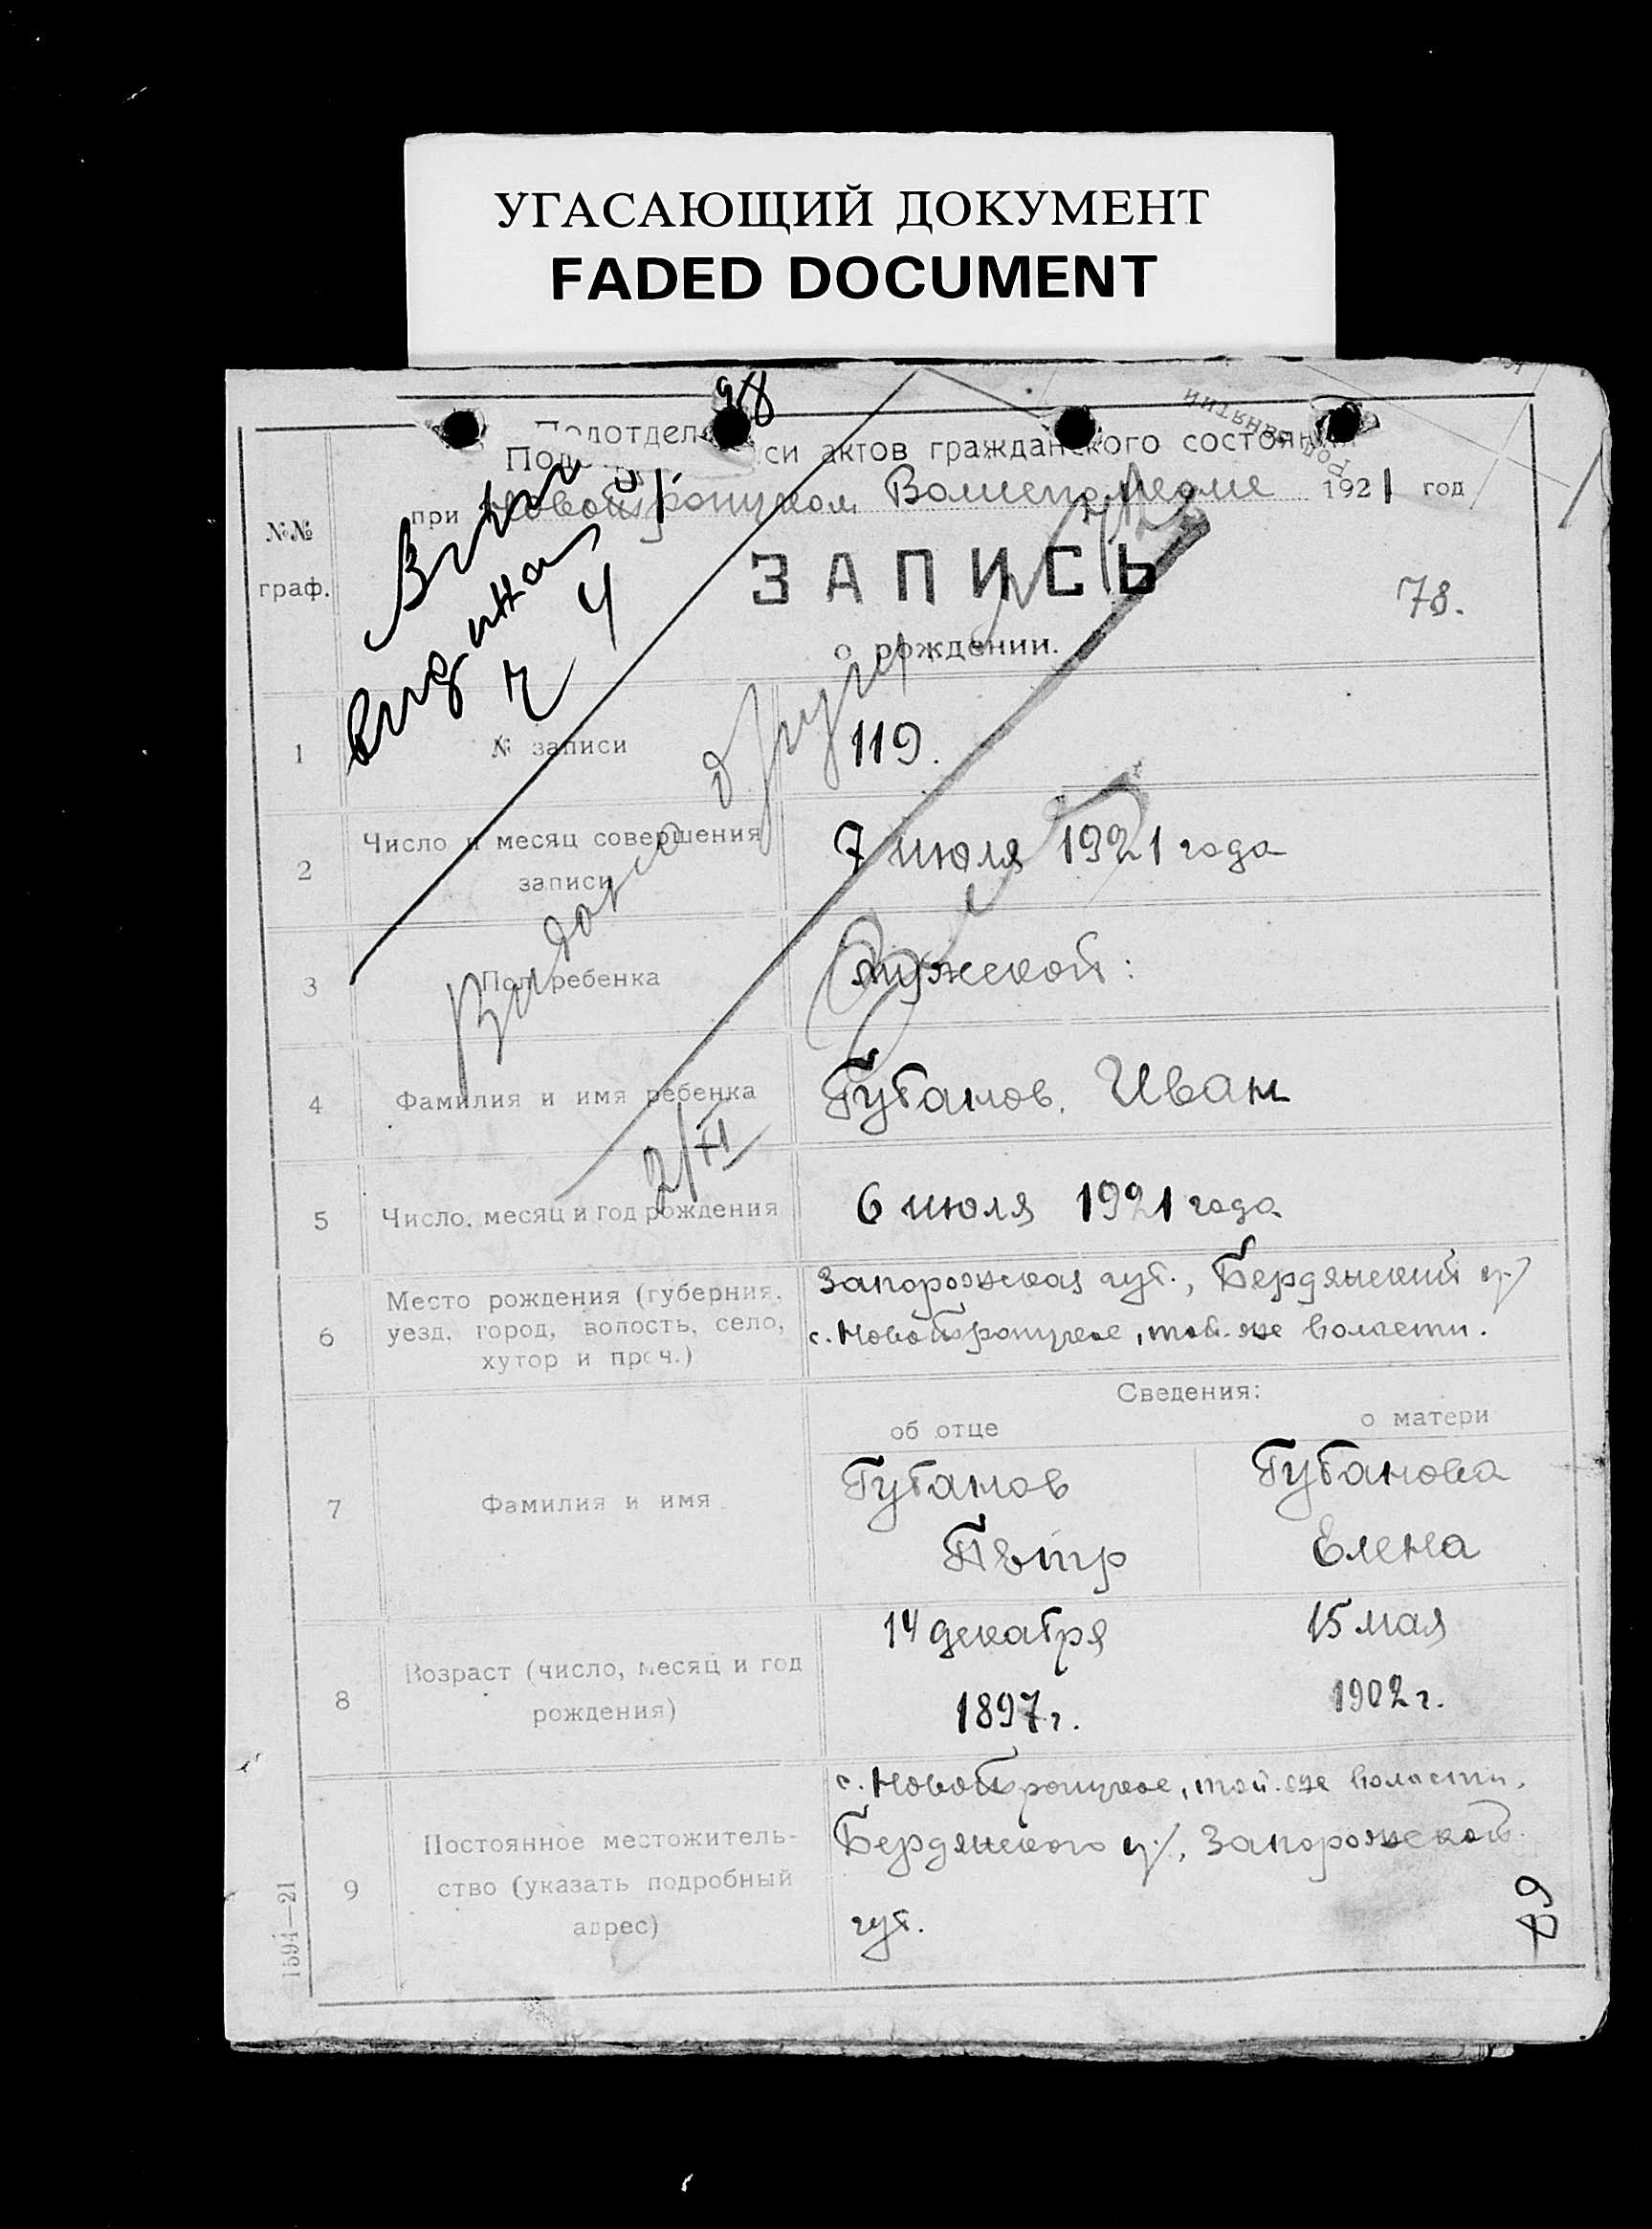 УГАСАЮЩИЙ ДОКУМЕНТ
FADED DOCUMENT
98
си актов гражданского состояния
при Новотроицком Волисполкоме 1921 год
№№
граф.
ЗАПИСЬ
о рождении.
78.
1 № записи 119.
2 Число и месяц совершения
записи
7 июля 1921 года
3 Пол ребенка мужской:
4 Фамилия и имя ребенка Губанов, Иван
2/XI
5 Число, месяц и год рождения 6 июля 1921 года
6 Место рождения (губерния,
уезд, город, волость, село,
хутор и проч.)
Запорожская губ., Бердянский у/
с. Новотроицкое, той-же волости.
Сведения:
об отце о матери
7 Фамилия и имя
Губанов Губанова
Пётр Елена
8 Возраст (число, месяц и год
рождения)
14 декабря 15 мая
1897 г. 1902 г.
9 Постоянное местожитель-
ство (указать подробный
адрес)
с. Новотроицкое, той-же волости,
Бердянского у/, Запорожской
губ.
1594—21